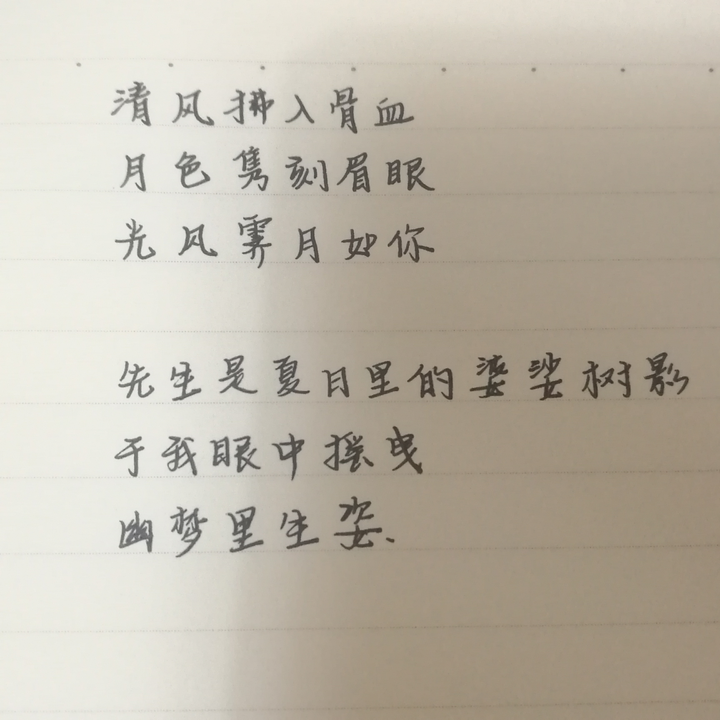 清风拂入骨血
月色隽刻眉眼
光风霁月如你
先生是夏日里的婆娑树影
于我眼中摇曳
幽梦里生姿、